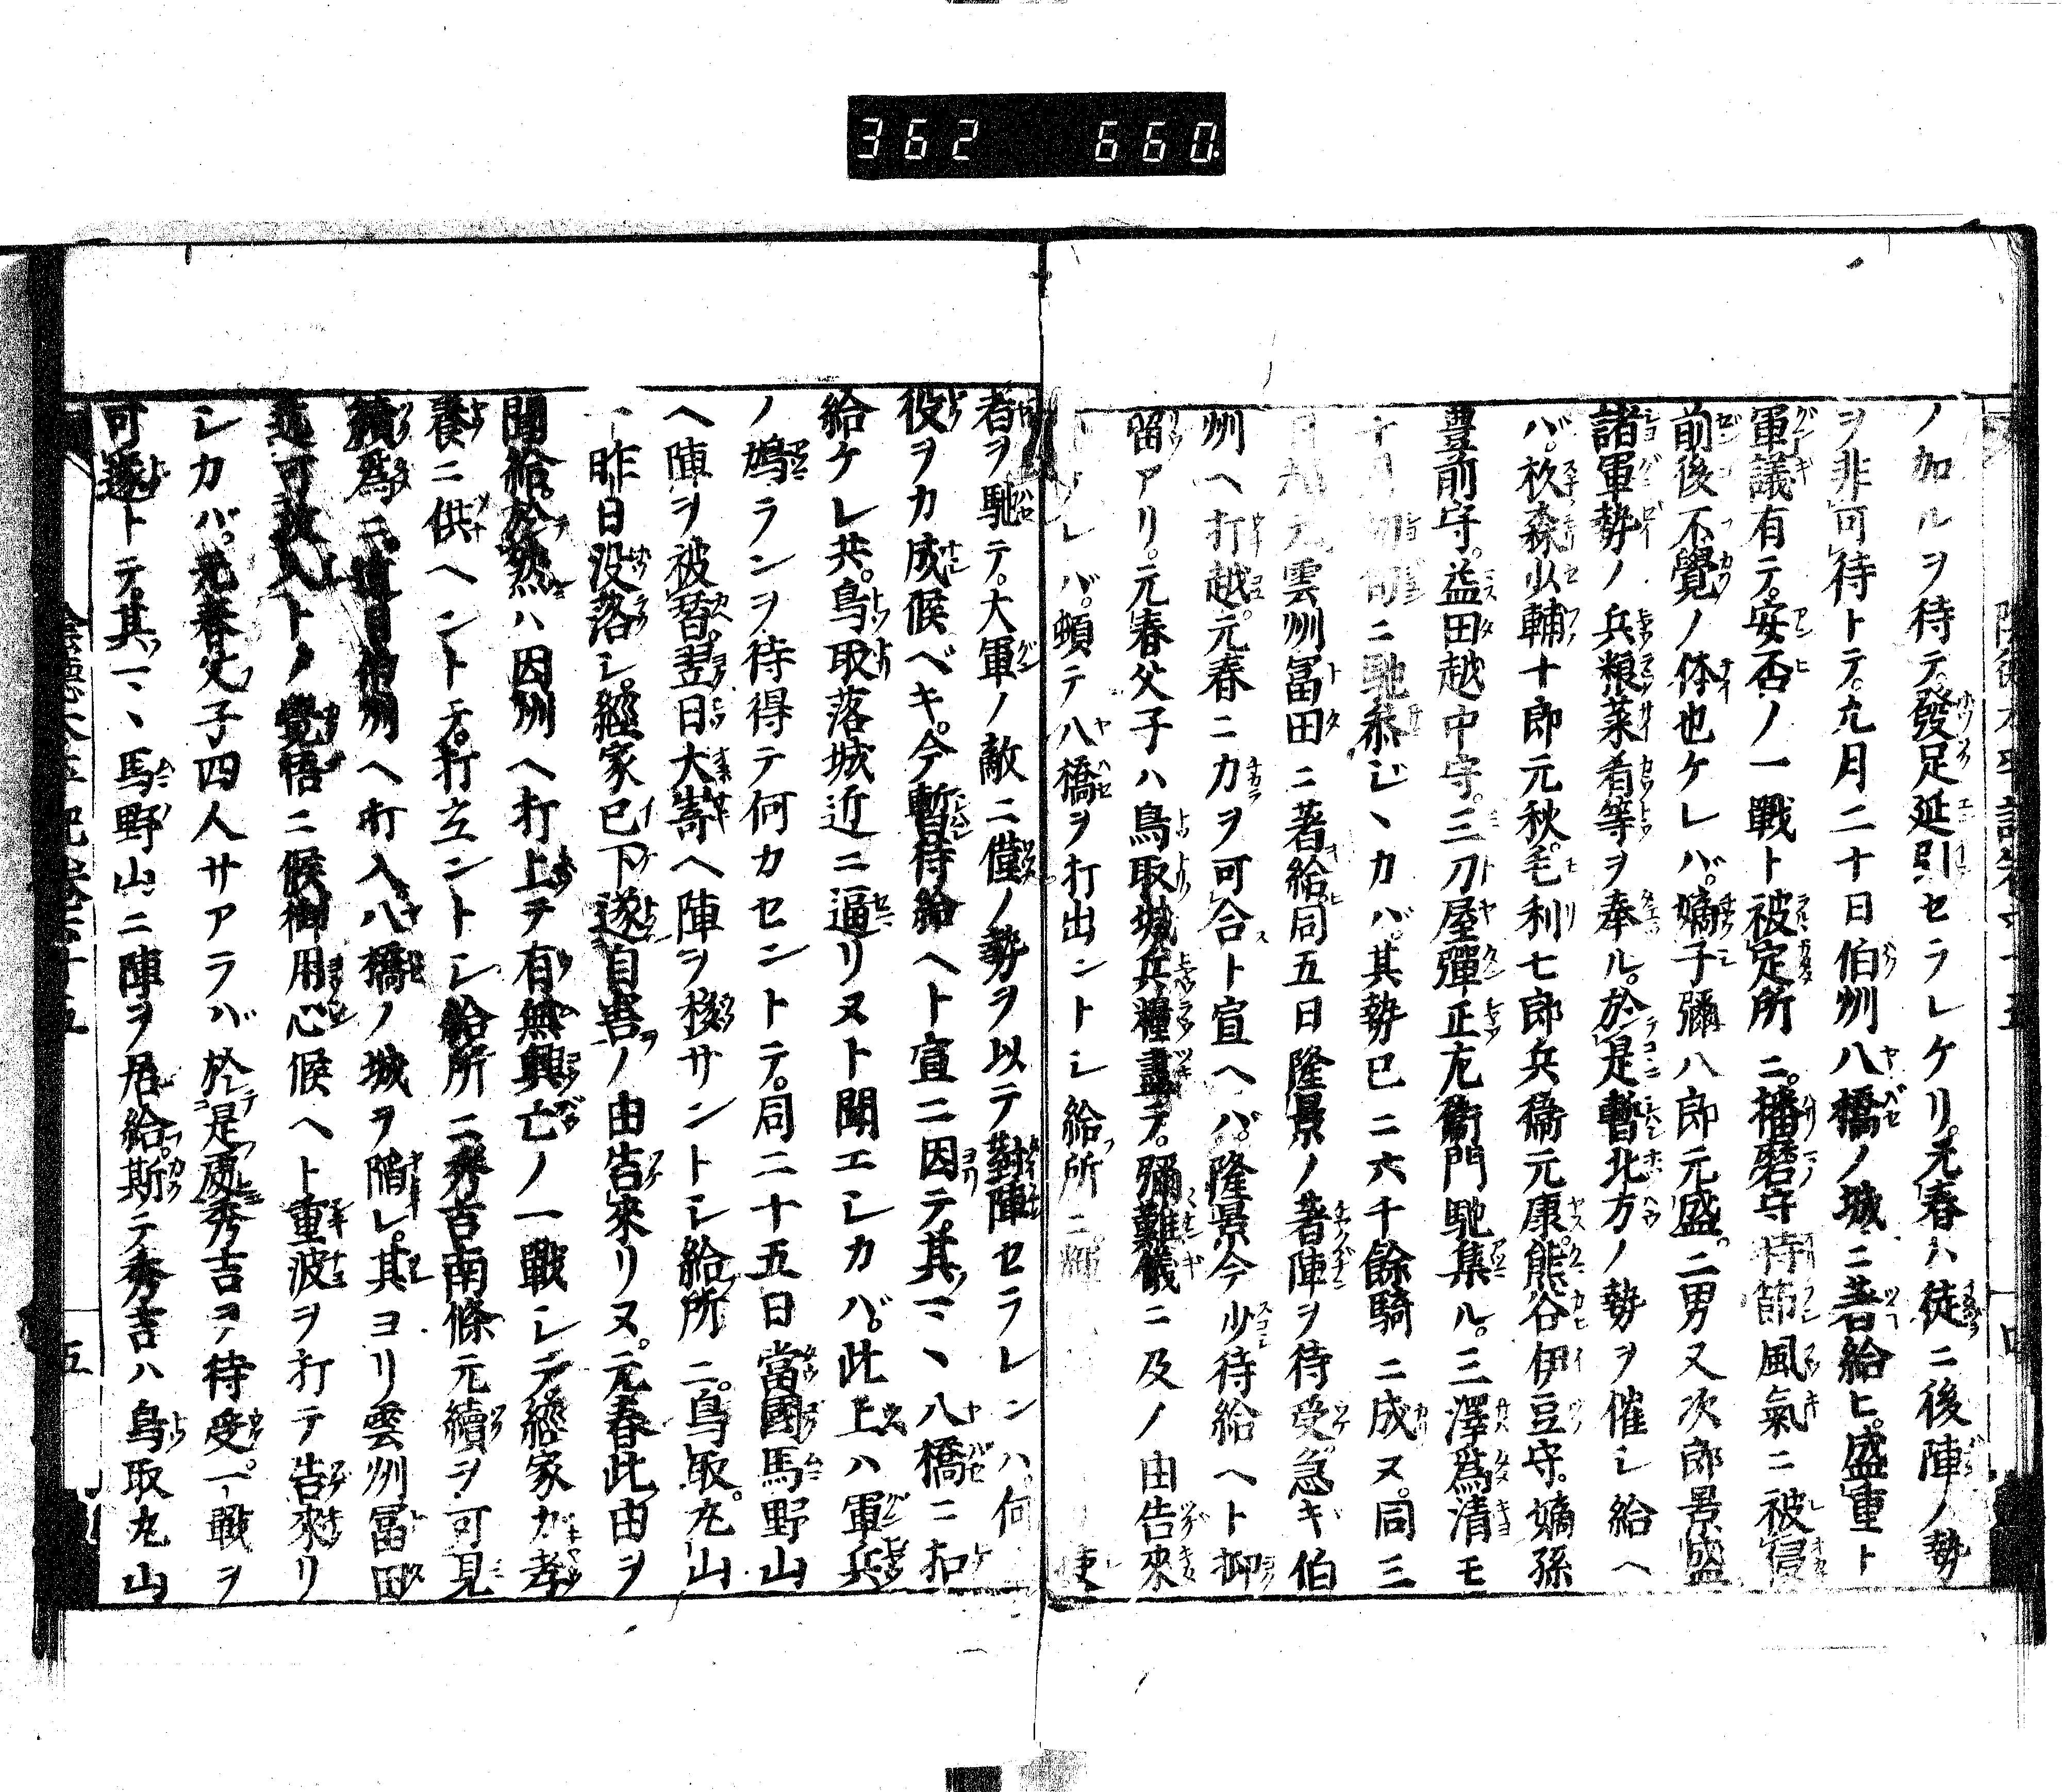 362 660.
ノ加ルヲ待テ。發足延引セラレケリ。元春ハ徒ニ後陣ノ勢
ヲ非可待トテ。九月二十日伯州八橋ノ城ニ著給ヒ。盛重ト
軍議有テ。安否ノ一戰ト被定所ニ。播磨守時節風氣ニ被侵
前後不覺ノ体也ケレバ。嫡子彌八郎元盛。二男又次郎景盛
諸軍勢ノ兵粮菜肴等ヲ奉ル。於是暫北方ノ勢ヲ催シ給ヘ
バ。杦森少輔十郎元秋。毛利七郎兵衞元康。熊谷伊豆守。嫡孫
豊前守。益田越中守。三刀屋彈正左衞門馳集ル。三澤爲清モ
十月初旬ニ馳參ジヽカバ。其勢已ニ六千餘騎ニ成ヌ。同三
日元雲州冨田ニ著給。同五日隆景ノ著陣ヲ待受。急ギ伯
州ヘ打越。元春ニ力ヲ可合ト宣ヘバ。隆景今少待給ヘト抑
留アリ。元春父子ハ鳥取城兵糧盡テ。彌難儀ニ及ノ由告來
レバ。頓テ八橋ヲ打出ントシ給所ニ。輝
者ヲ馳テ。大軍ノ敵ニ僅ノ勢ヲ以テ對陣セラレンハ。何
役ヲカ成候ベキ。今暫待給ヘト宣ニ因テ。其マヽ八橋ニ扣
給ケレ共。鳥取落城近ニ逼リヌト聞エシカバ。此上ハ軍兵
ノ鳩ランヲ待得テ何カセントテ。同二十五日當國馬野山
ヘ陣ヲ被替。翌日大嵜ヘ陣ヲ移サントシ給所ニ。鳥取。丸山
一昨日没落シ。經家已下遂自害ノ由告來リヌ。元春此由ヲ
聞給。於然ハ因州ヘ打上テ有無興亡ノ一戰シテ經家ガ孝
養ニ供ヘントテ。打立ントシ給所ニ秀吉南條元續ヲ可見
續爲ニ。伯州ヘ打入八橋ノ城ヲ陥レ。其ヨリ雲州冨田
可被入トノ覺悟ニ候御用心候ヘト重波ヲ打テ告來リ
シカバ。元春父子四人サアラバ於是處秀吉ヲ待受。一戰ヲ
可遂トテ。其マヽ馬野山ニ陣ヲ居給。斯テ秀吉ハ鳥取丸山
五